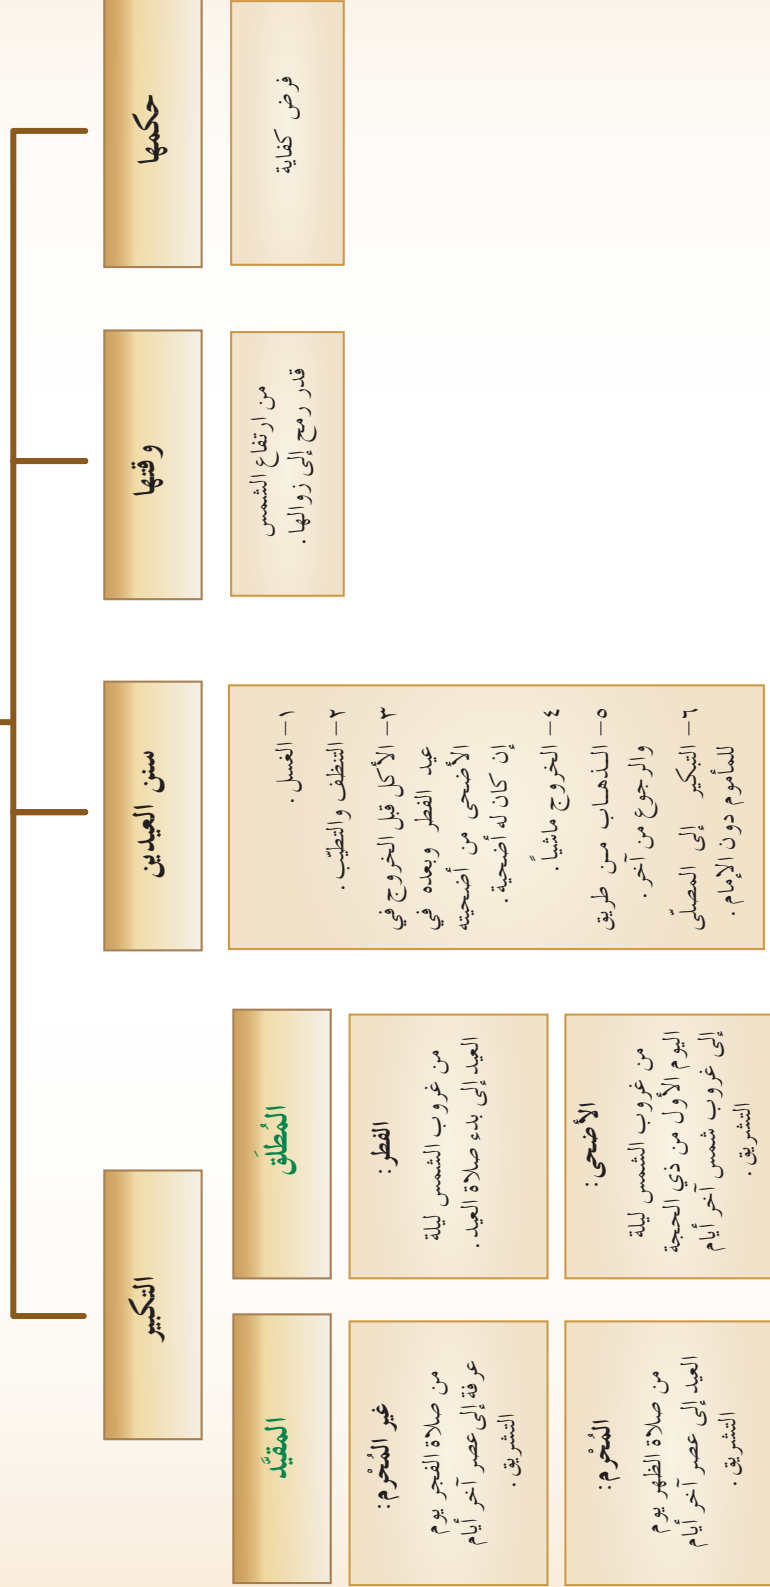 حكمها
فرض كفاية
وقتها
من ارتفاع الشمس
قدر رمح إلى زوالها.
سنن العيدين
١- الغسل.
٢- التنظف والتطيّب.
٣- الأكل قبل الخروج في
عيد الفطر وبعده في
الأضحى من أضحيته
إن كان له أضحية.
٤- الخروج ماشياً.
٥- الـذهـاب مـن طريق
والرجوع من آخر.
٦- التبكير إلى المصلّى
للمأموم دون الإمام.
التكبير
المُطلَق
الفطر:
من غروب الشمس ليلة
العيد إلى بدء صلاة العيد.
الأضحى:
من غروب الشمس ليلة
اليوم الأول من ذي الحجة
إلى غروب شمس آخر أيام
التشريق.
المقيَّد
غير المُحْرِم:
من صلاة الفجر يوم
عرفة إلى عصر آخر أيام
التشريق.
المُحْرِم:
من صلاة الظهر يوم
العيد إلى عصر آخر أيام
التشريق.